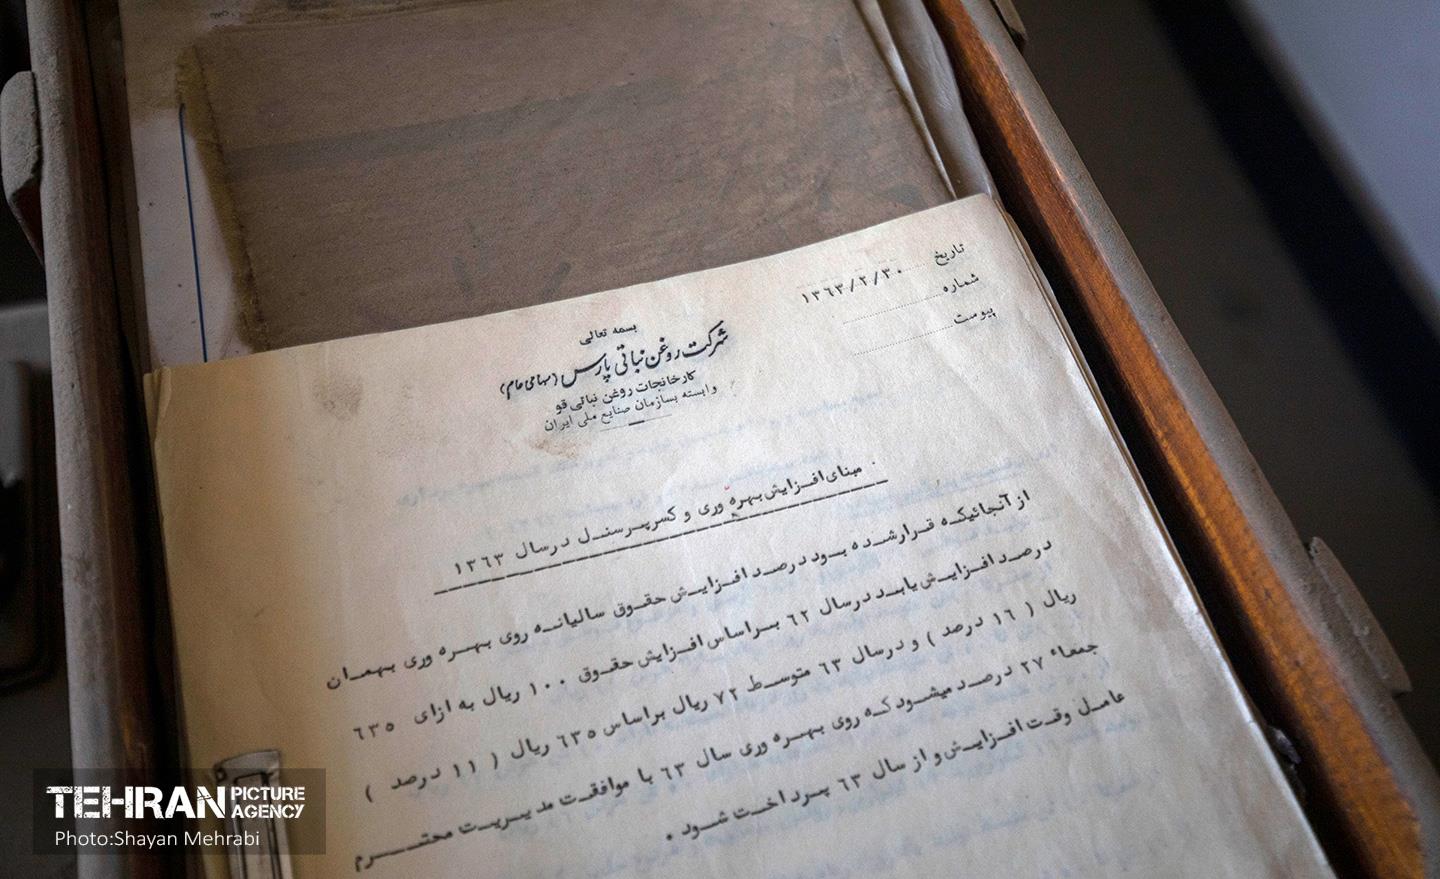 تاریخ ۱۳٦۳/۲/۳۰
شماره
پیوست
بسمه تعالی
شرکت روغن نباتی پارس (سهامی عام)
کارخانجات روغن نباتی قو
وابسته بسازمان صنایع ملی ایران
مبنای افزایش بهره وری و کسرپرسنل درسال ۱۳٦۳
از آنجائیکه قرارشده بود درصد افزایش حقوق سالیانه روی بهره وری بهمان
درصد افزایش یابد درسال ٦۲ براساس افزایش حقوق ۱۰۰ ریال به ازای ٦۳۵
ریال ( ۱٦ درصد ) و درسال ٦۳ متوسط ۷۲ ریال براساس ٦۳۵ ریال ( ۱۱ درصد )
جمعاً ۲۷ درصد میشود که روی بهره وری سال ٦۳ با موافقت مدیریت محترم
عامل وقت افزایش و از سال ٦۳ پرداخت شود .
TEHRAN PICTURE AGENCY
Photo:Shayan Mehrabi